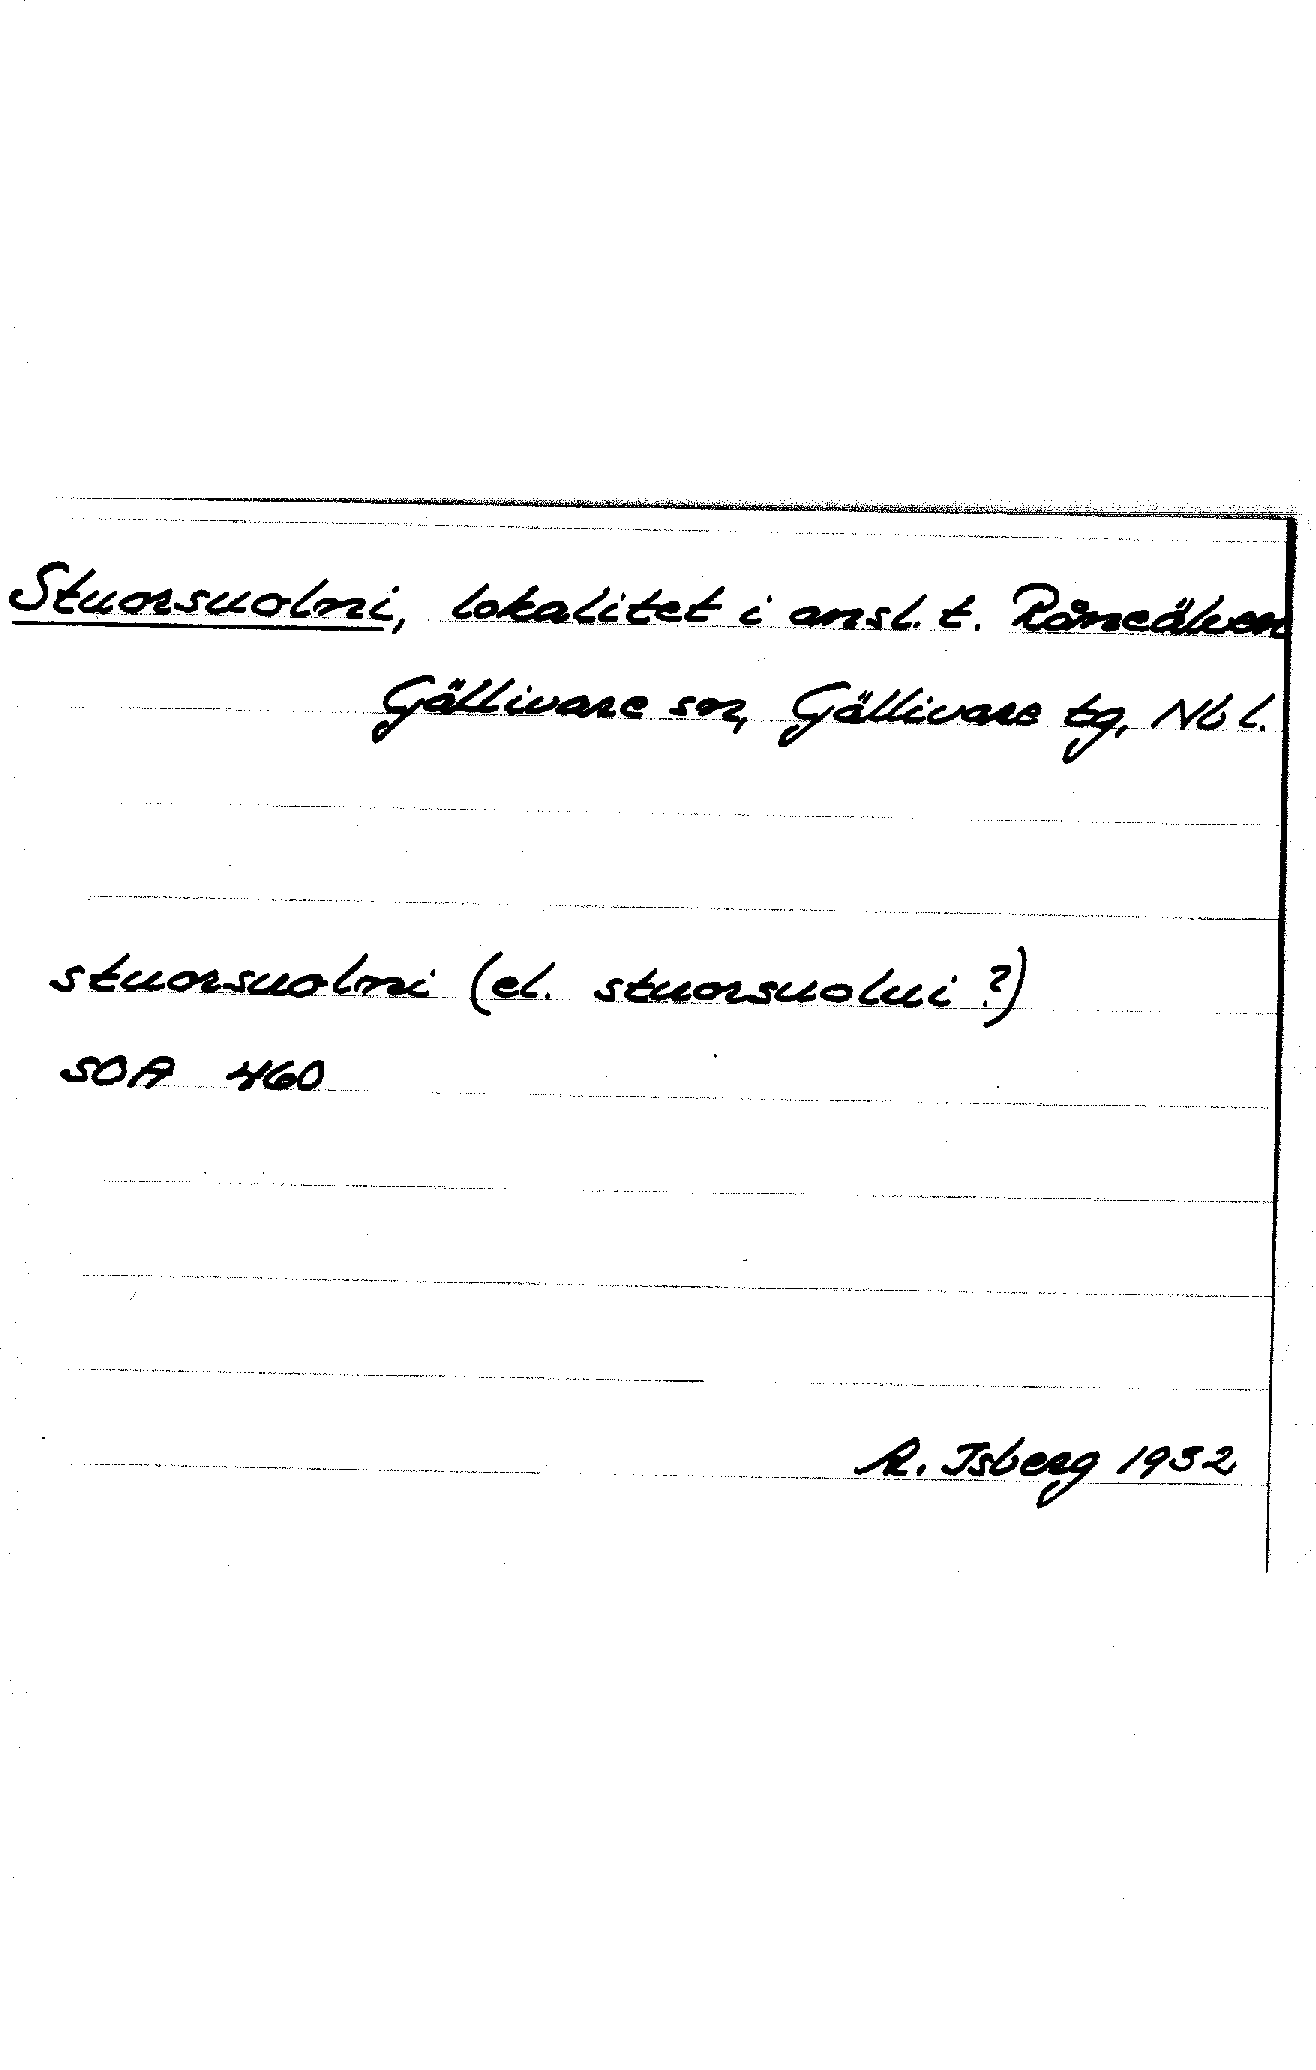 Stuorsuolmi, lokalitet i ansl. t. Råneälven
Gällivare sn, Gällivare tg, Nb l.
stuorsuolmi (el. stuorsuolui ?)
SOA 460
R. Isberg 1932